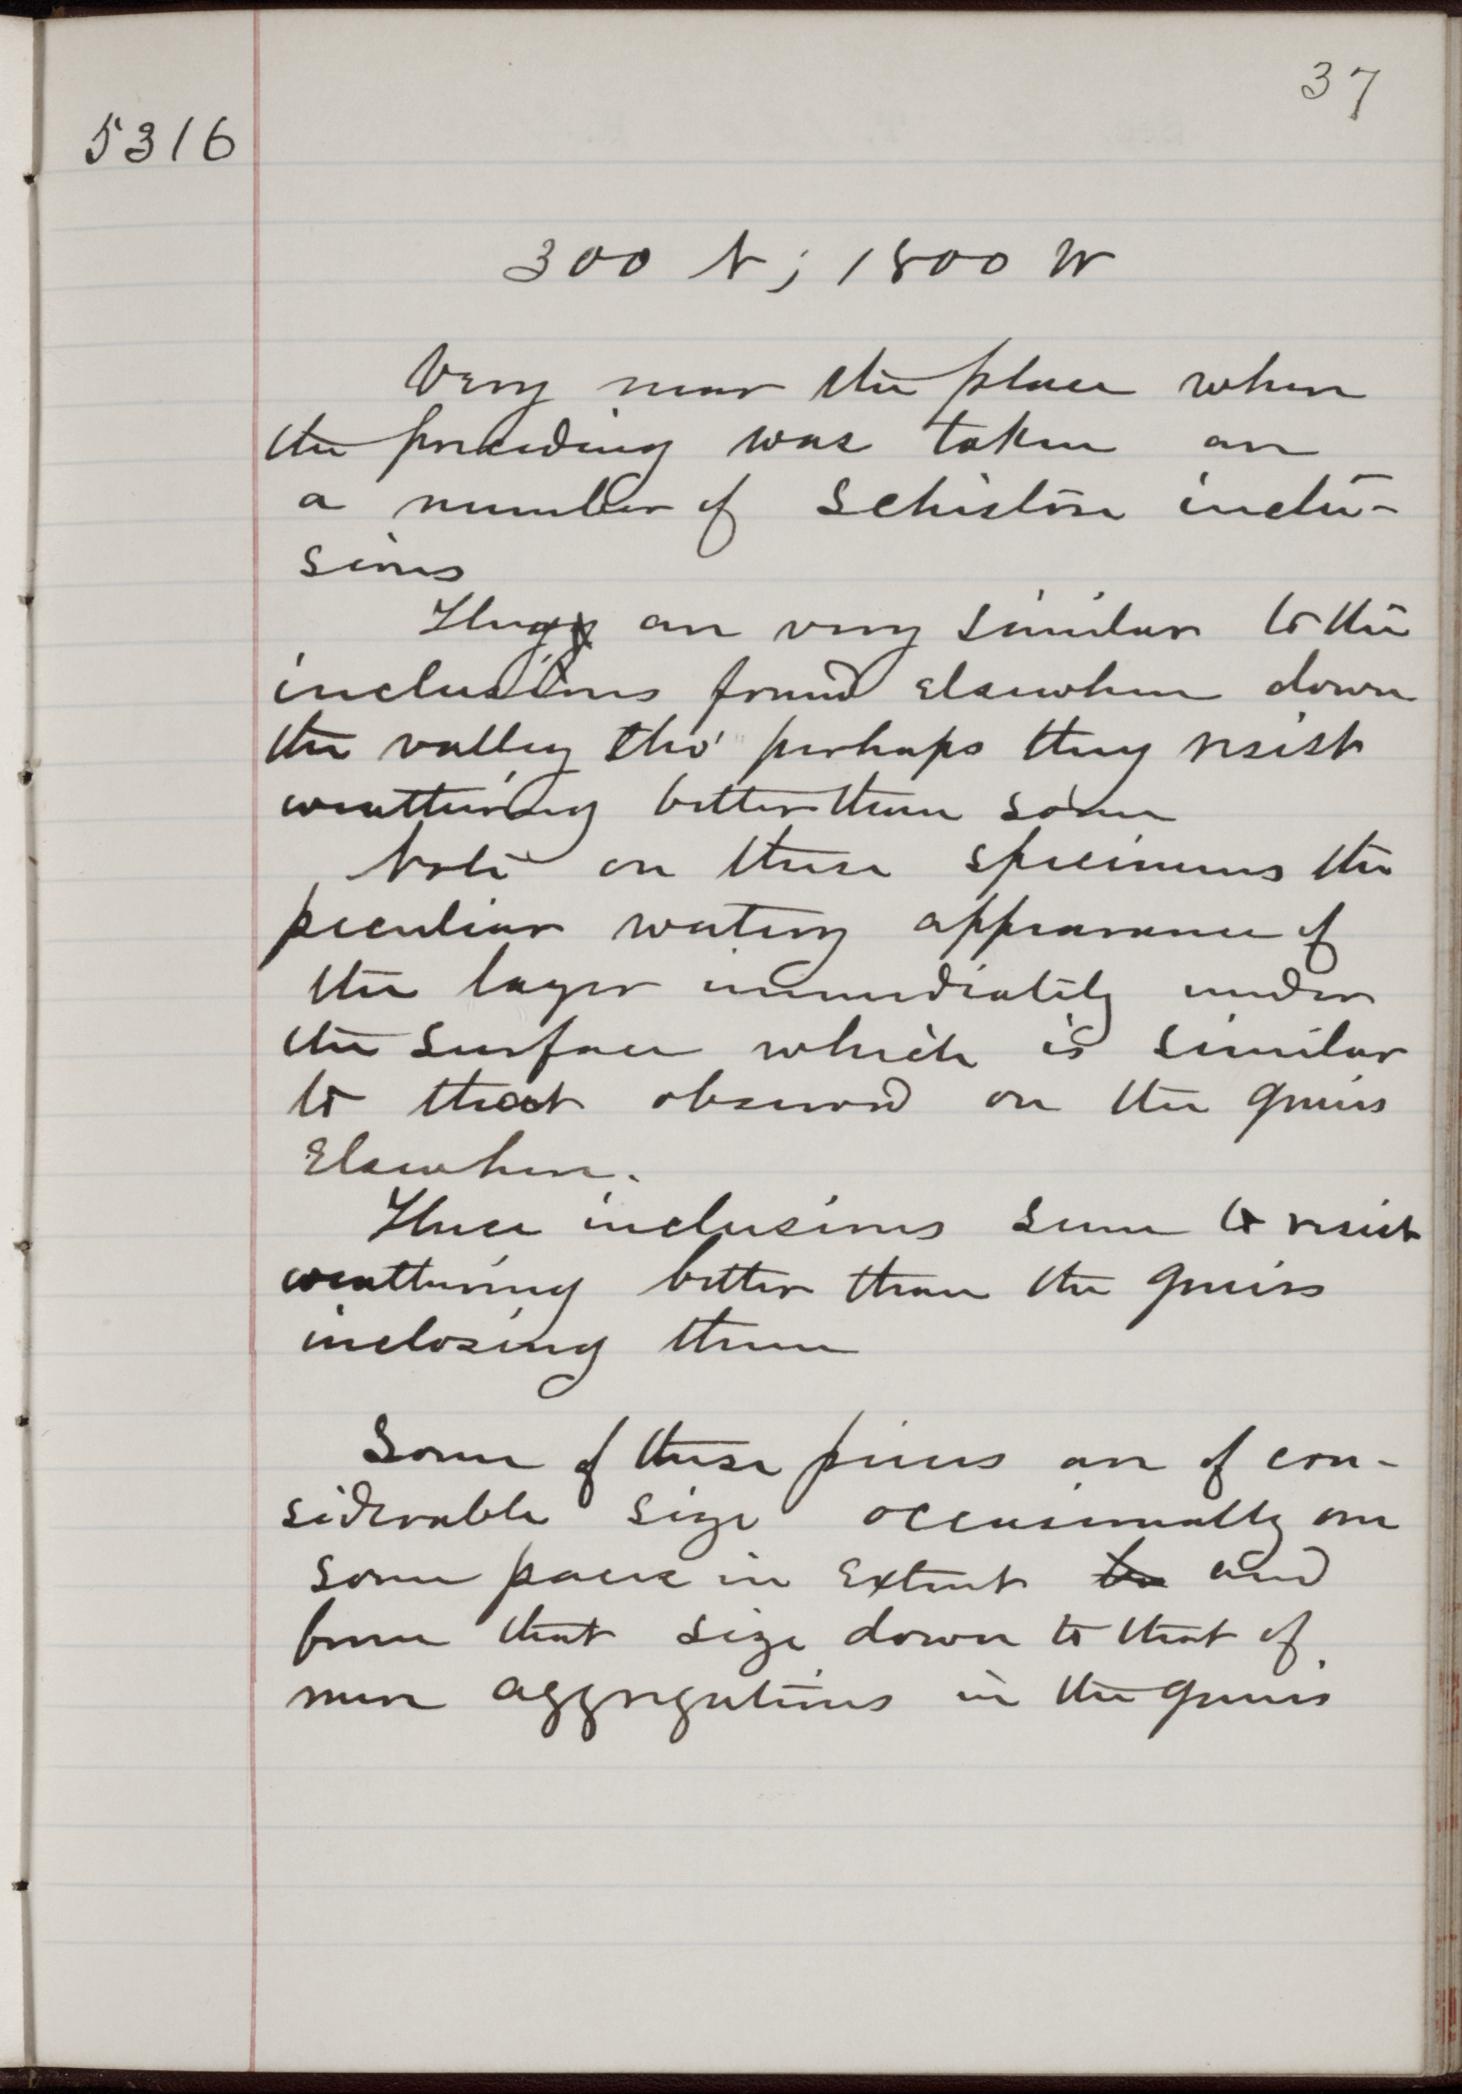 37
5316
300 N; 1800 W
Very near the place where
the preceding was taken are
a number of schistose inclu-
sions
They are very similar to the
inclusions found elsewhere down
the valley tho' perhaps they resist
weathering better than some
Note on these specimens the
peculiar watery appearance of
the layer immediately under
the surface which is similar
to that observed on the gneiss
elsewhere.
These inclusions seem to resist
weathering better than the gneiss
inclosing them
Some of these pieces are of con-
siderable size occasionally one
some paces in extent and
from that size down to that of
mere aggregations in the gneiss